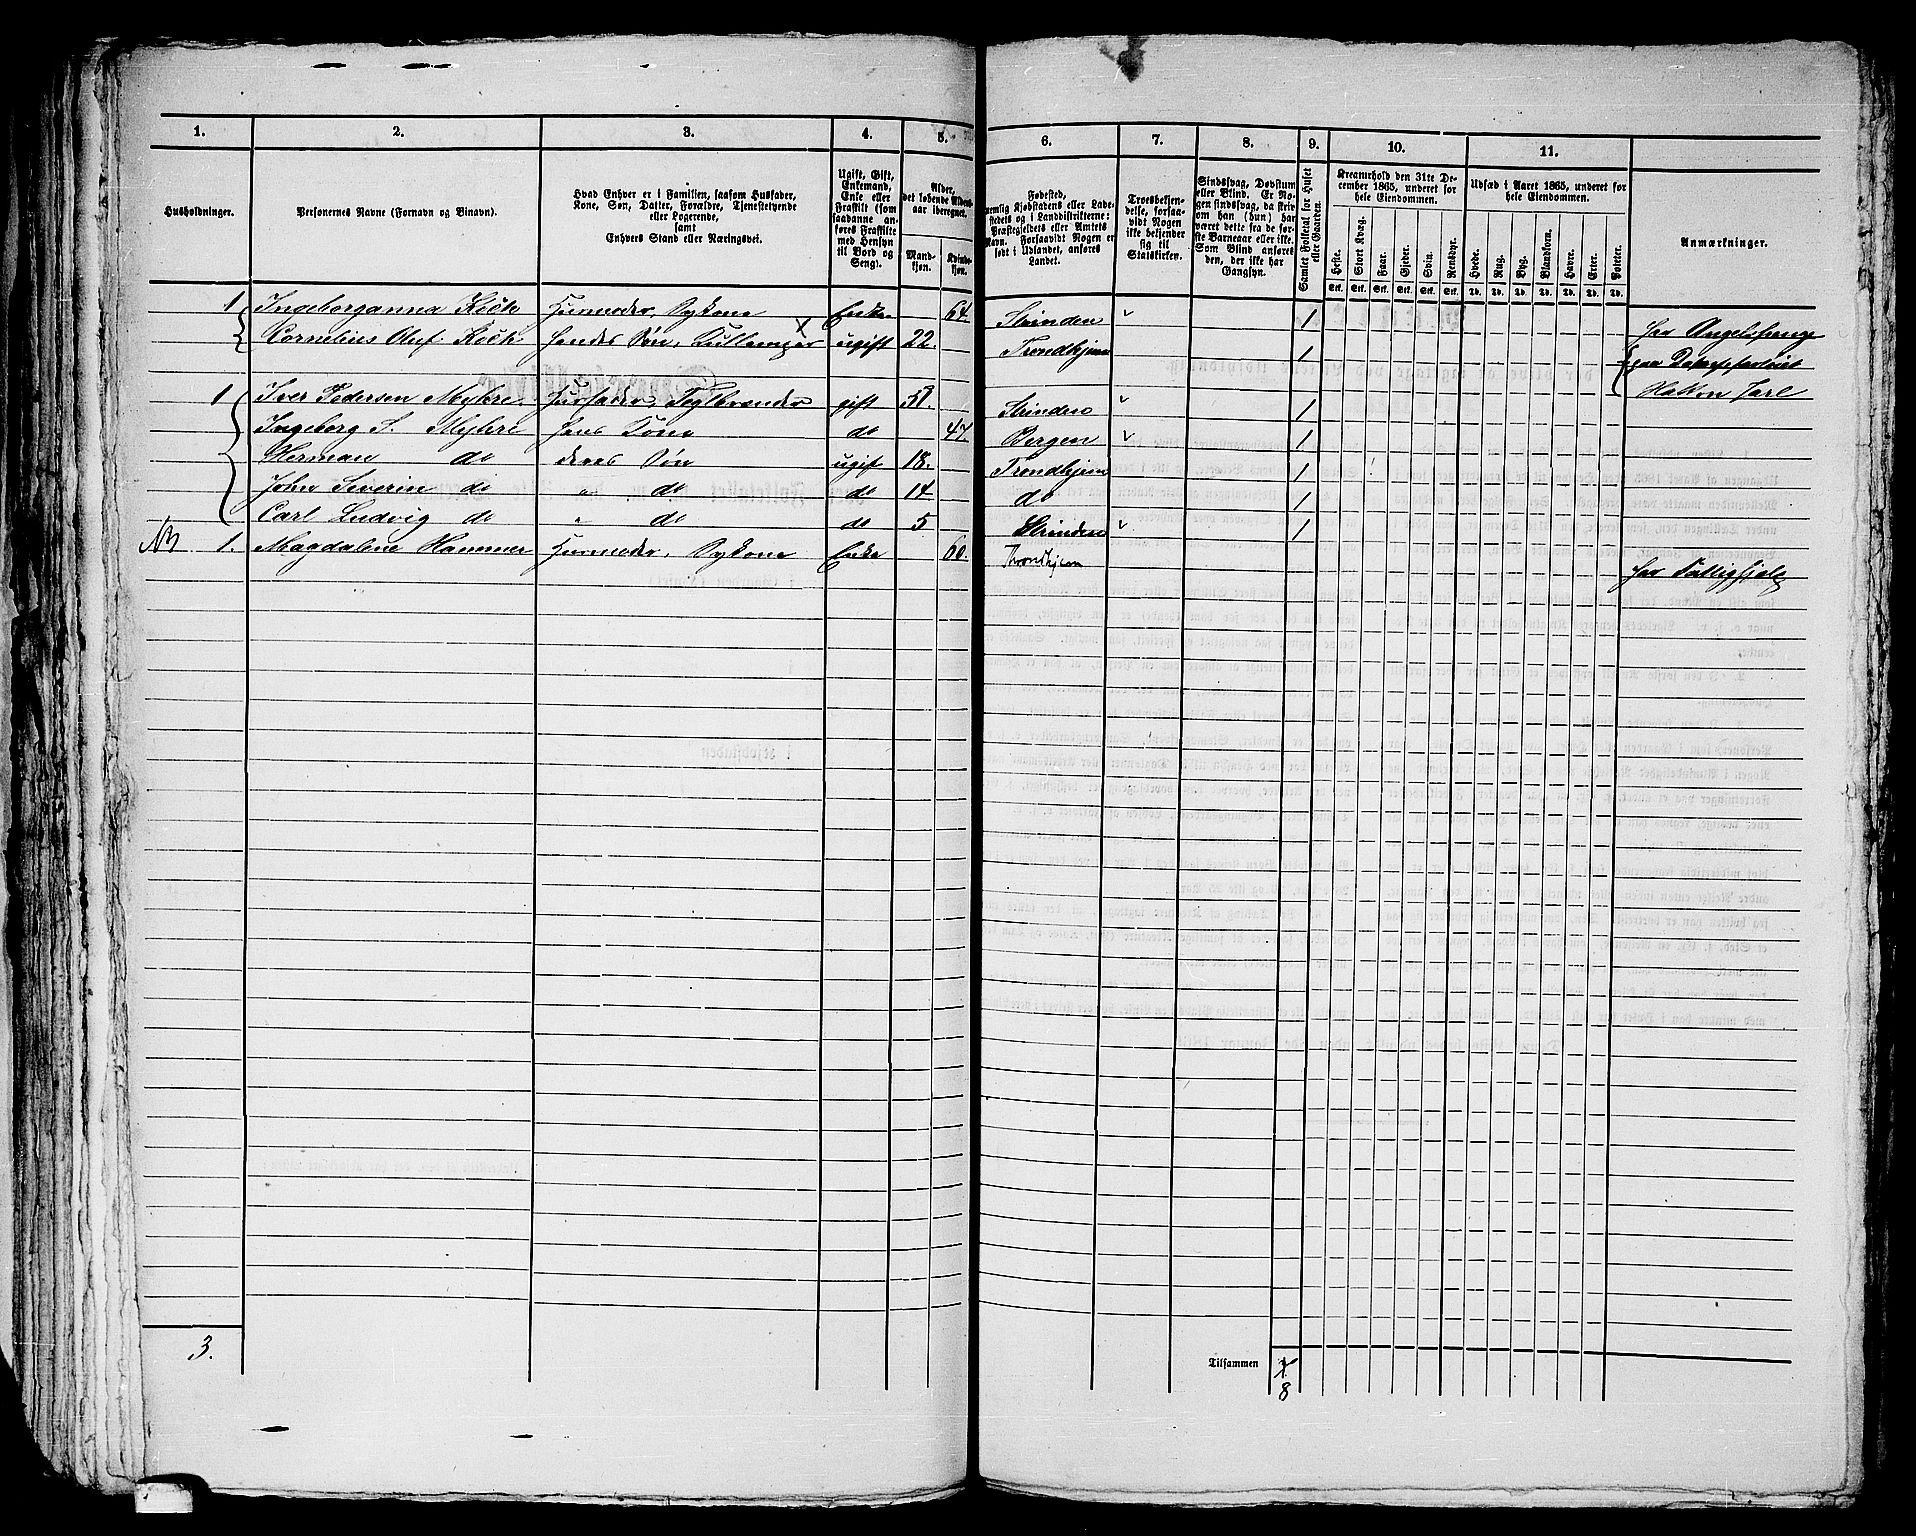 1. 2. 3. 4. 5. 6. 7. 8. 9. 10. 11.
Husholdninger.
Personernes Navne (Fornavn og Binavn).
Hvad Enhver er i Familien, saasom Husfader,
Kone, Søn, Datter, Forældre, Tjenestetyende
eller Logerende,
samt
Enhvers Stand eller Næringsvei.
Ugift, Gift,
Enkemand,
Enke eller
Fraskilt (som
saadanne an-
føres Fraskilte
med Hensyn
til Bord og
Seng).
Alder,
det løbende Alders-
aar iberegnet.
Mand-
kjøn.
Kvinde-
kjøn.
Fødested,
nemlig Kjøbstadens eller Lade-
stedets og i Landdistrikterne:
Præstegjeldets eller Amtets
Navn. Forsaavidt Nogen er
født i Udlandet, anføres
Landet.
Troesbekjen-
delse, forsaa-
vidt Nogen
ikke bekjender
sig til
Statskirken.
Sindssvag, Døvstum
eller Blind. Er No-
gen sindssvag, da skriv
om han (hun) har
været dette fra de før-
ste Barneaar eller ikke.
Som Blind ansøres
den, der ikke har
Gangsyn.
Samlet Folketal for Huset
eller Gaarden.
Kreaturhold den 31te De-
cember 1865, underet for
hele Eiendommen.
Heste. Stort Kvæg. Faar. Gjeder. Svin. Rensdyr.
Stk. Stk. Stk. Stk. Stk. Stk.
Udsæd i Aaret 1865, underet for
hele Eiendommen.
Hvede. Rug. Byg. Blandkorn. Havre. Erter. Poteter.
Td. Td. Td. Td. Td. Td. Td.
Anmærkninger.
1 Ingeborganna Kõck Huusmoder, Sykone Enke 64. Strinden 1
Cornelius Oluf Kõck Hendes Søn, ugift 22. Trondhjem 1 paa
1 Iver Pedersen Myhre Huusfader, gift Strinden 1 Hakon Jarl
Ingeborg S. Myhre Hans Kone do 47. Bergen 1
Herman do deres Søn ugift 18. Trondhjem 1
John Severin do " do do 14 do 1
Carl Ludvig do " do do 5 Strinden 1
NB 1. Magdalene Hammer Huusmoder, Sykone Enke 60. Throndhjem har Fattighjelp
3.
Tilsammen 7
8